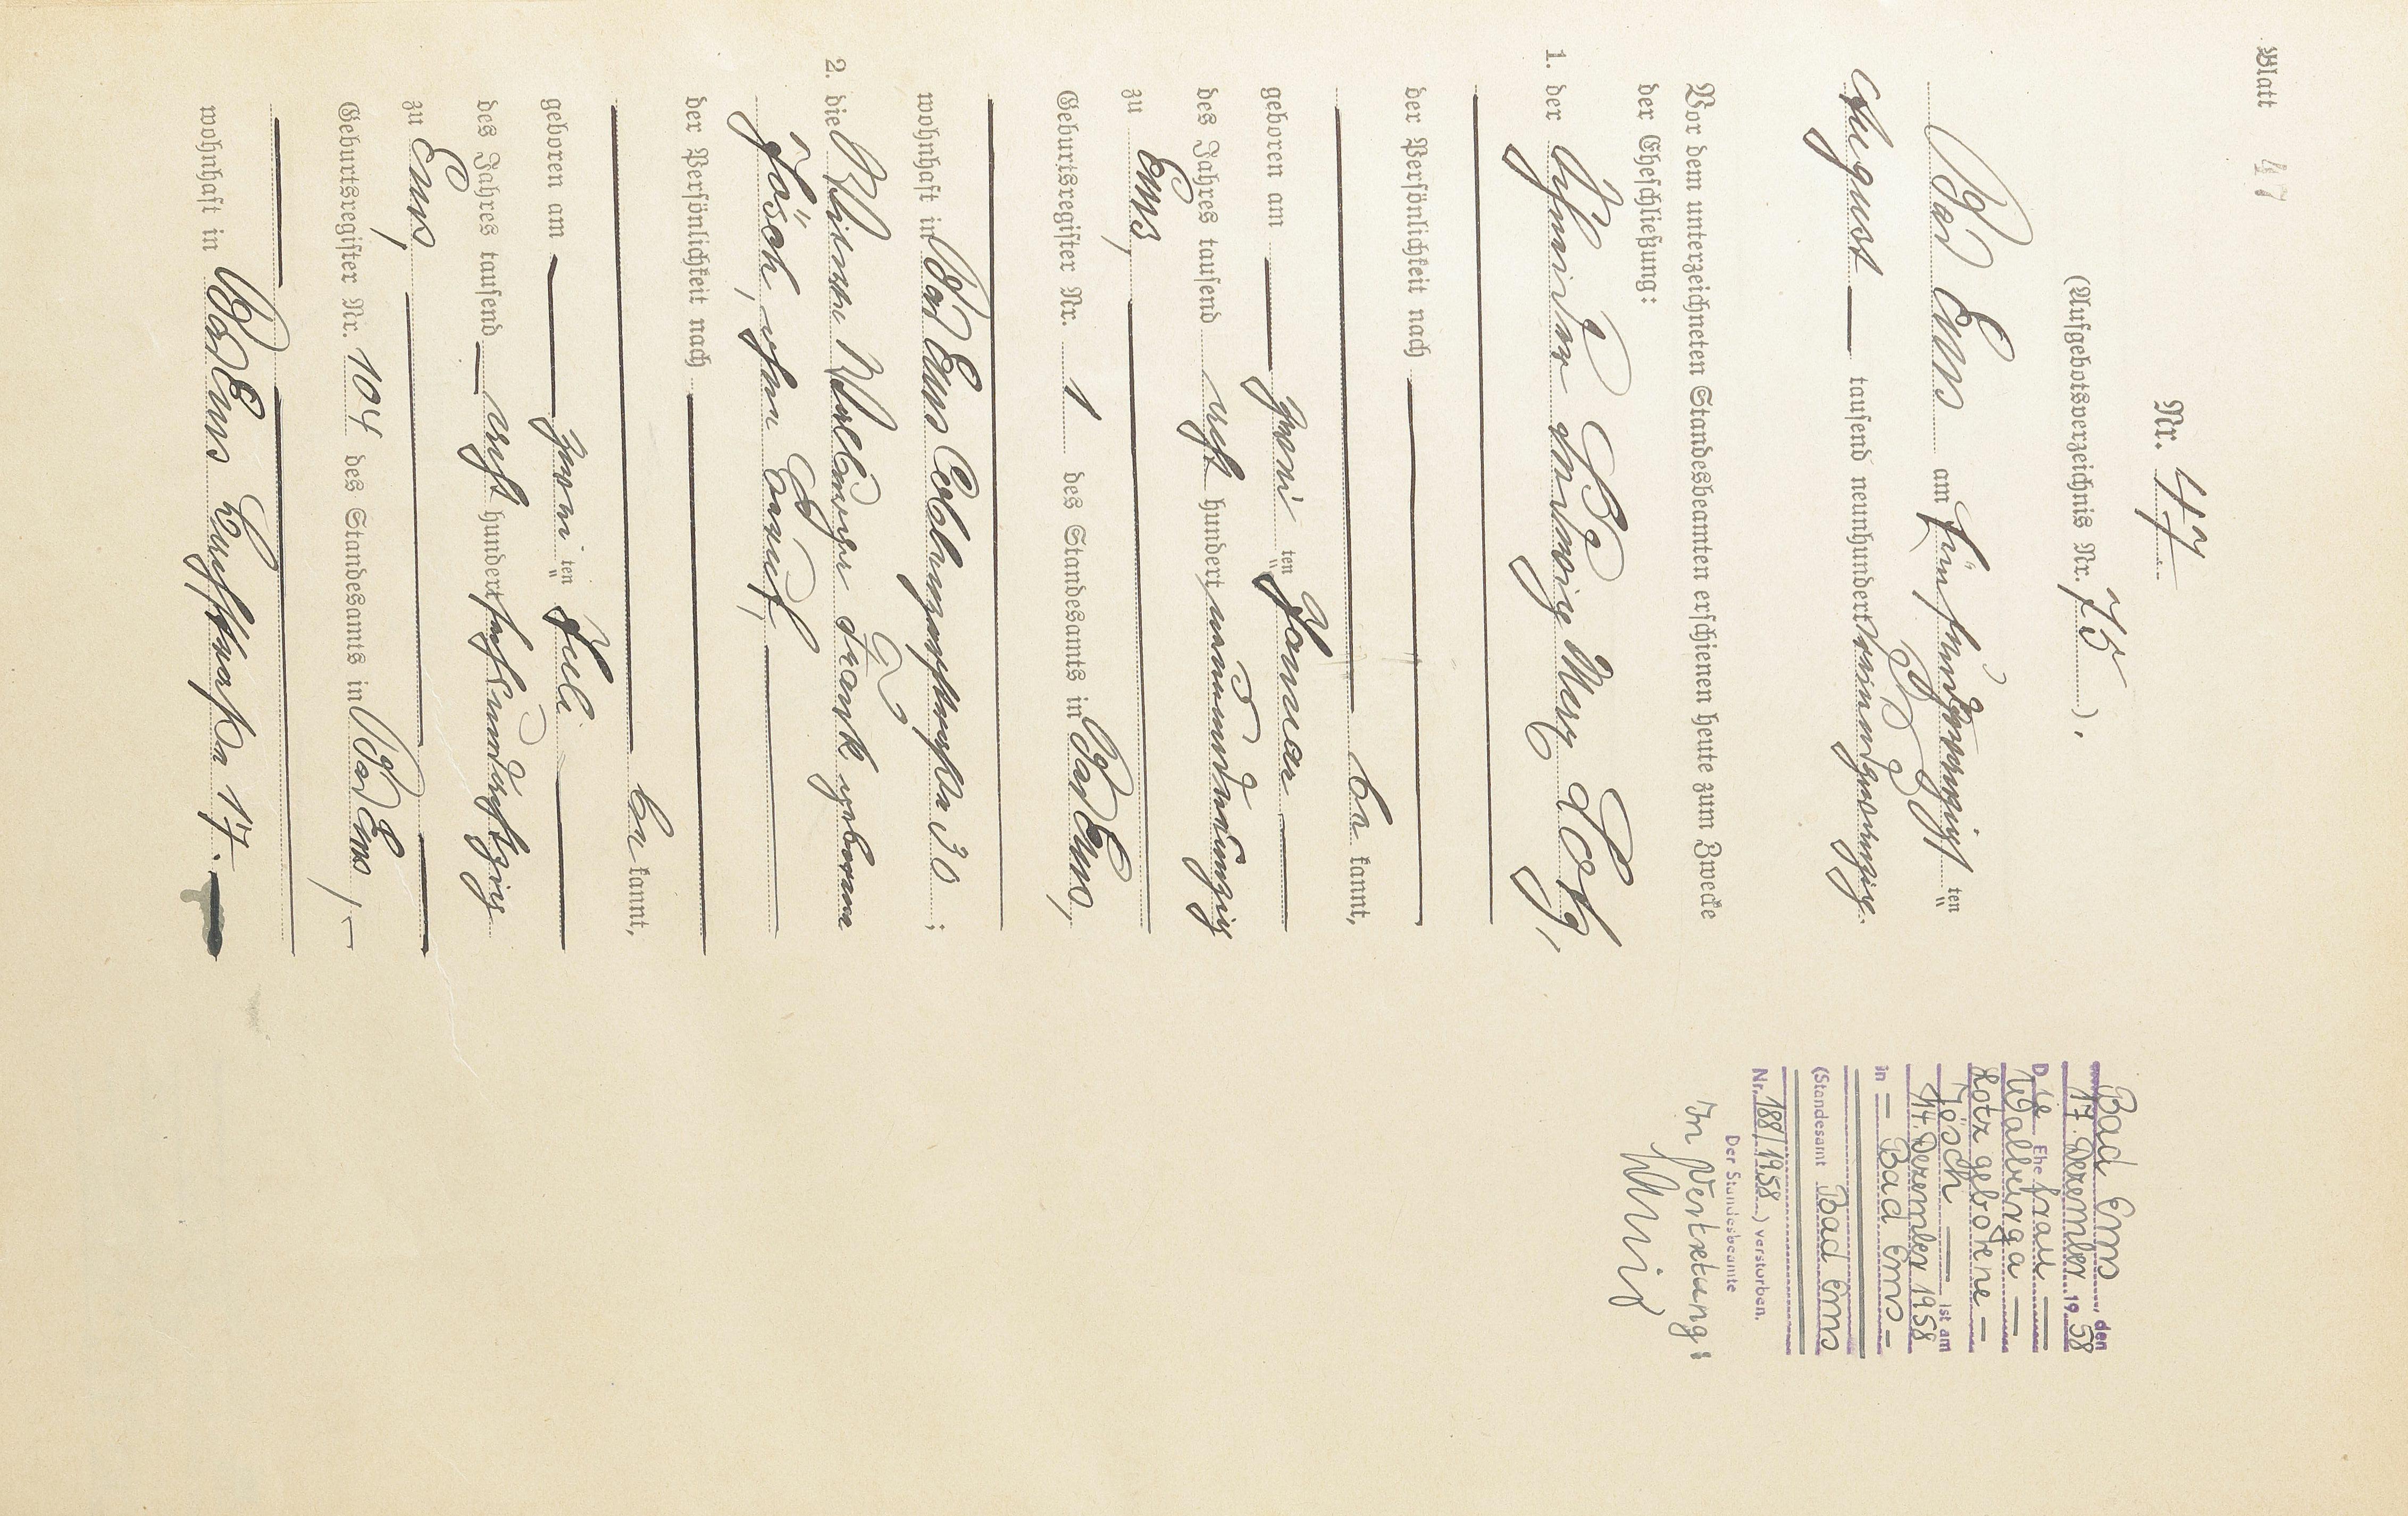 Blatt 47
Nr. 47
(Aufgebotsverzeichnis Nr. 75).
Bad Ems am fünfundzwanzigsten
August tausend neunhundert
Vor dem unterzeichneten Standesbeamten erschienen heute zum Zwecke
der Eheschließung:
1. der Schneider Ludwig Lotz,
der Persönlichkeit nach
be kannt,
geboren am zweiten Januar
des Jahres tausend acht hundert neunundneunzig
zu Ems,
Geburtsregister Nr. 1 des Standesamts in Bad Ems,
wohnhaft in Bad Ems 30;
2. die Witwe Walburga Frank geborene
Jösch, ohne Beruf,
der Persönlichkeit nach
be kannt,
geboren am zweiten Juli
des Jahres tausend acht hundert
zu Ems,
Geburtsregister Nr. 104 des Standesamts in Bad Ems,
wohnhaft in Bad Ems 17.
Bad Ems, den
17. Dezember 1958
Die Ehefrau
Walburga
Lotz geborene
Jösch ist am
14. Dezember 1958
in Bad Ems
(Standesamt Bad Ems
Nr. 188/1958) verstorben.
Der Standesbeamte
In Vertretung: